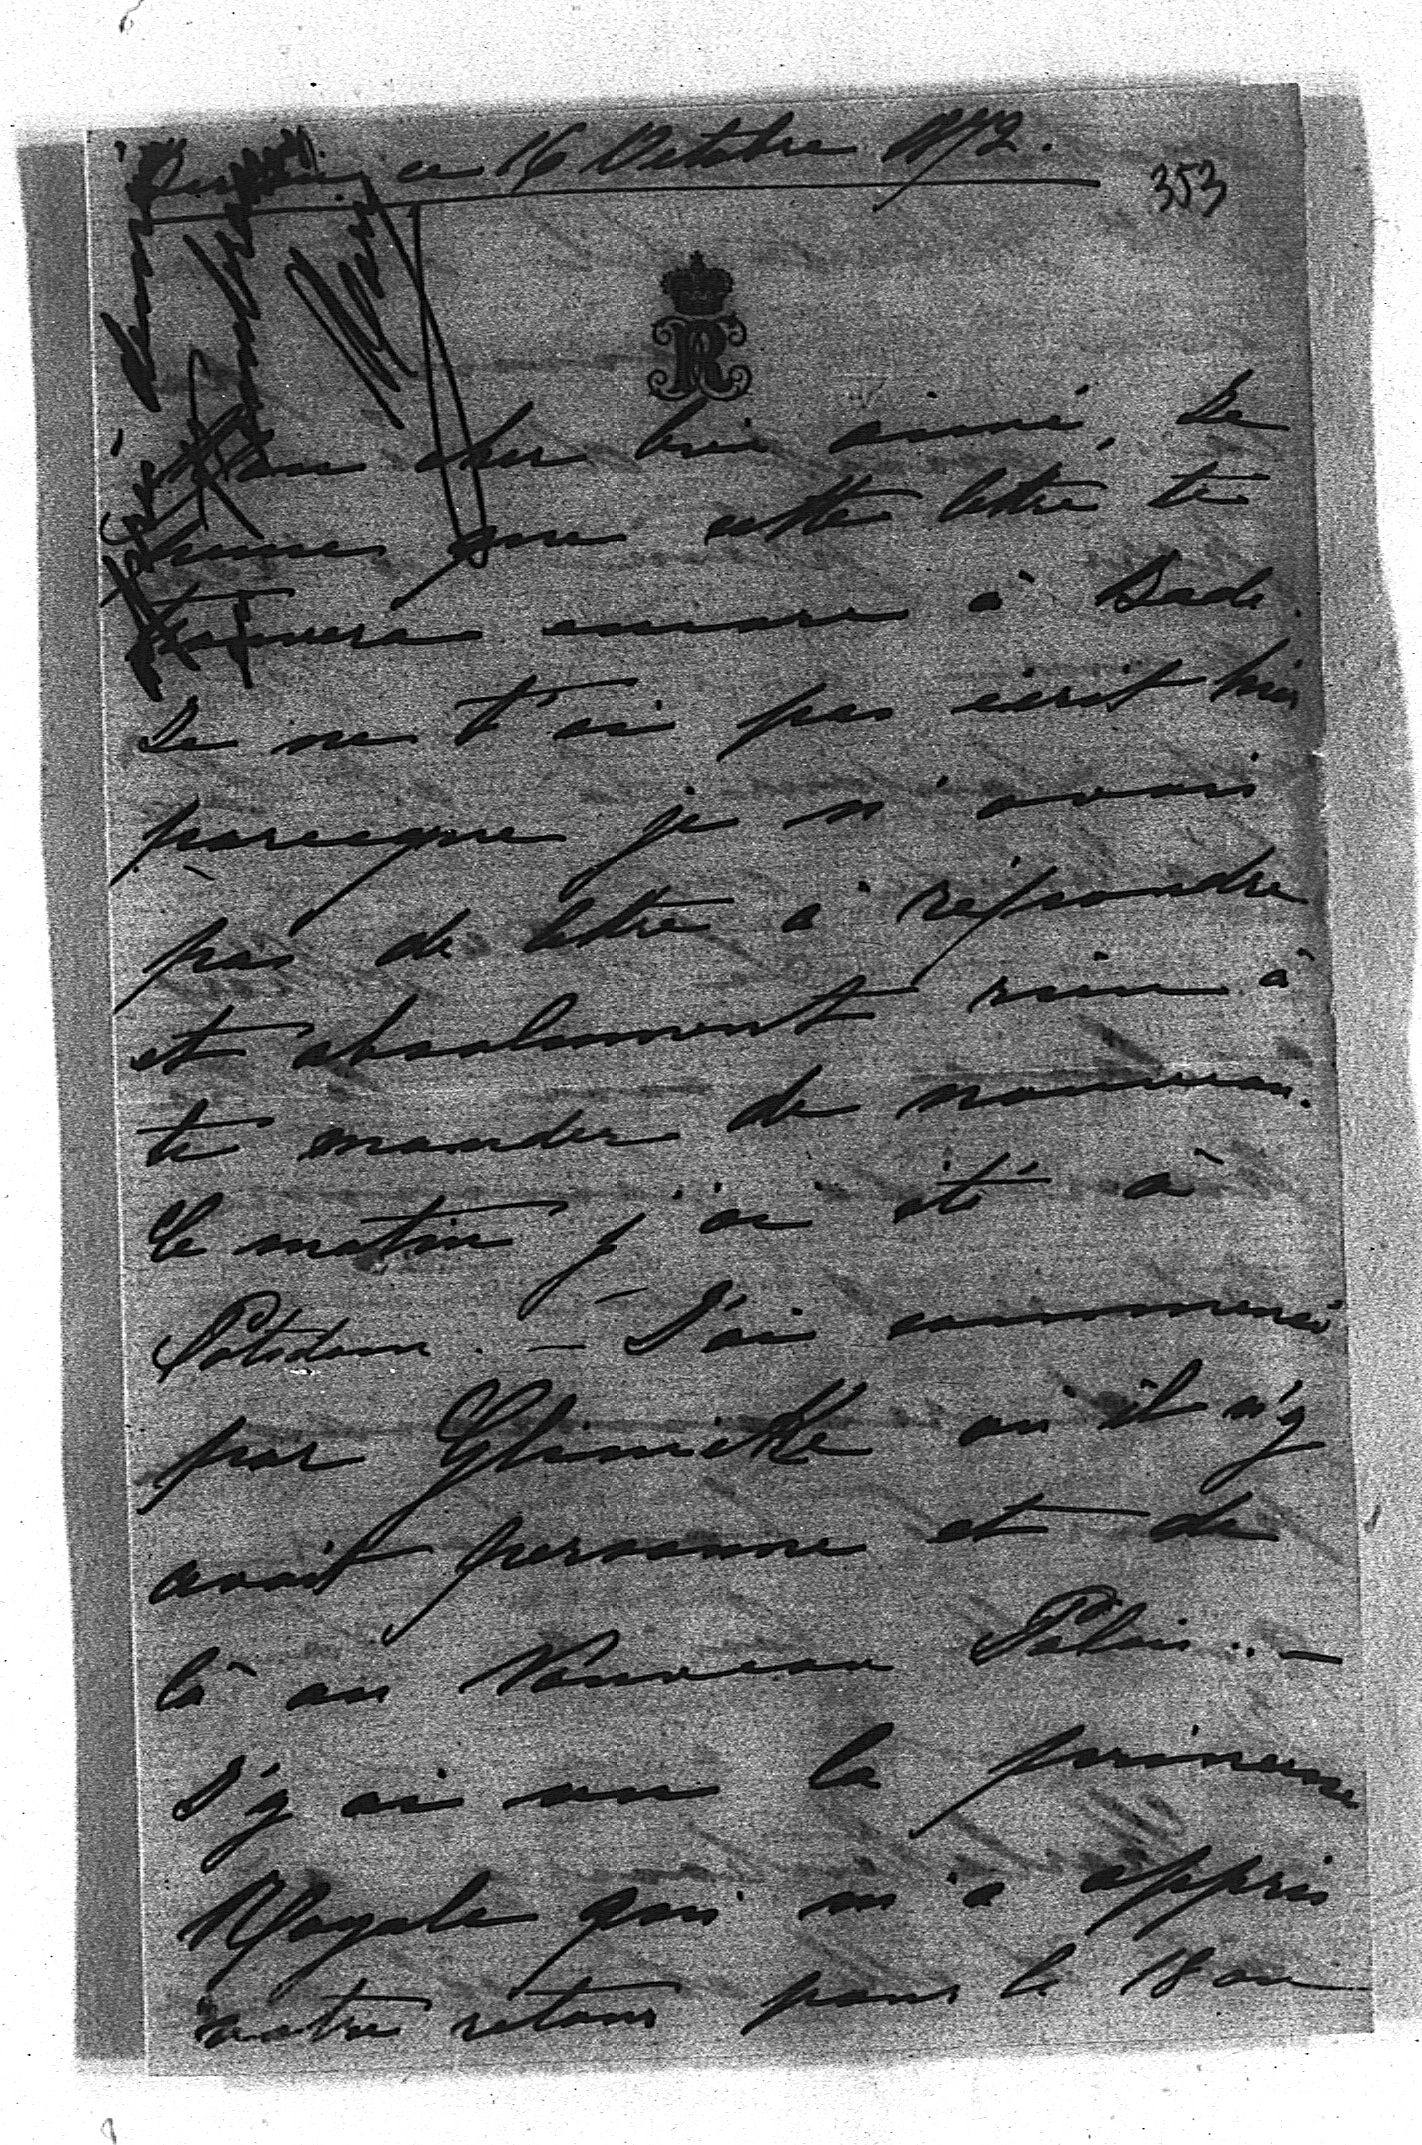 Berlin ce 16 Octobre 1872.
353
R
Mon cher bien aimé, Je
pense que cette lettre te
trouvera encore à Bade.
Je ne t'ai pas écrit hier
parceque je n'avais
pas de lettre à répondre
et absolument rien à
te mander de nouveau.
Ce matin j'ai été à
Potsdam. — J'ai commencé
par Glienicke où il n'y
avait personne et de
là au Nouveau Palais. —
J'y ai vu la princesse
Royale qui m'a appris
votre retour pour le 18 au